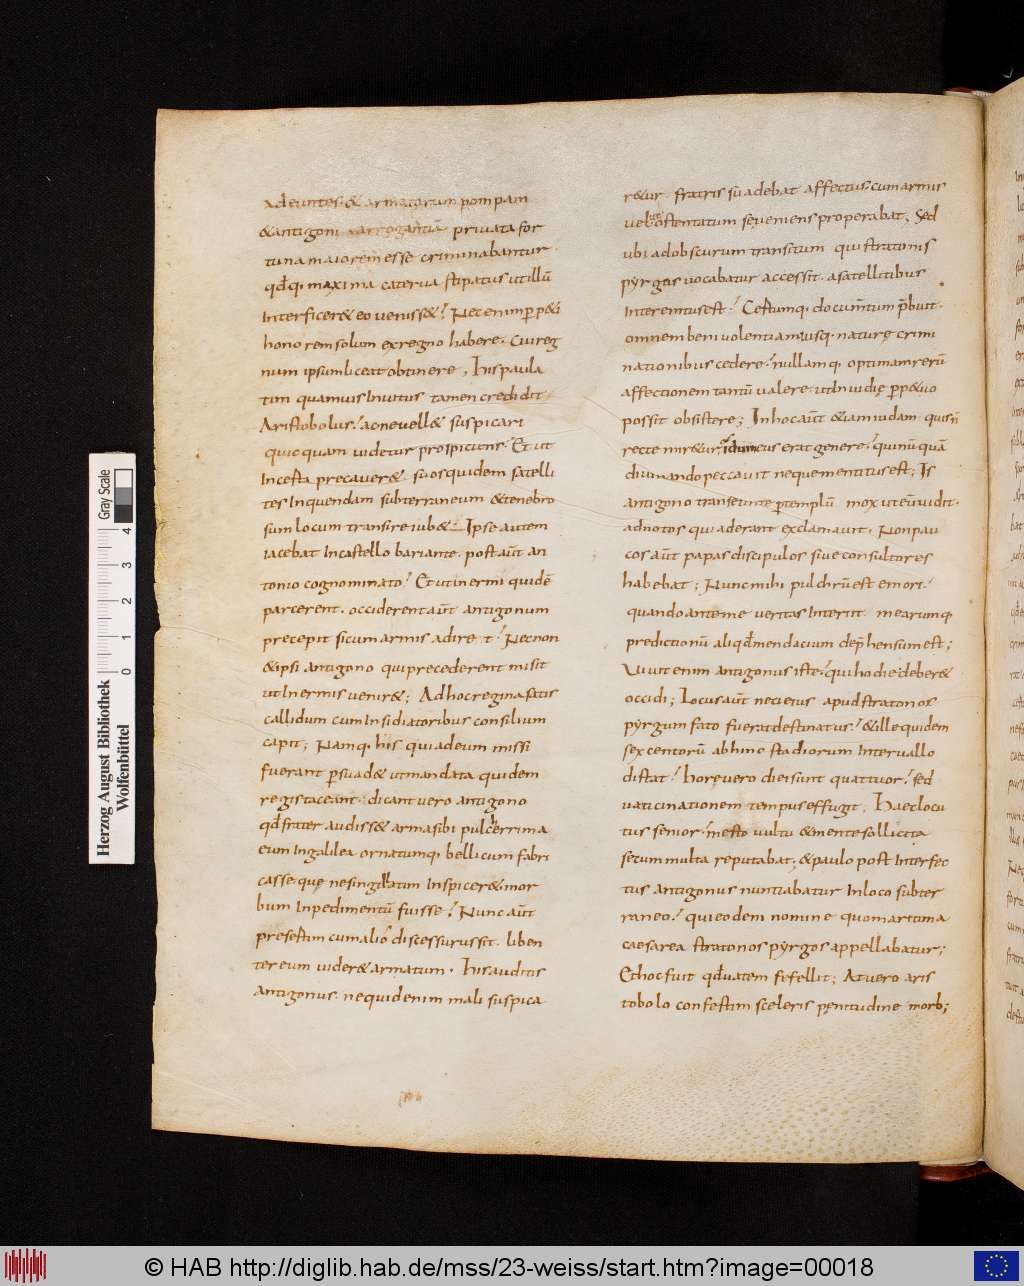 adeuntes. & armatorum pompam
& antigoni arrogantiā privata for
tuna maiorem esse criminabantur.
qđq; maxima caterva stipatus utillū
interficer& eo veniss&. Nec enim ꝑp&i
honorem solum ex regno habere. Cui reg
num ipsum liceat obtinere, His paula
tim quamvis invitus tamen credidit
Aristobolus. ac ne vell& suspicari
quicquam videtur prospiciens. Et ut
incesta precaver&. suos quidem satelli
tes in quendam subterraneum & tenebro
sum locum transire iub&. Ipse autem
iacebat in castello bari ante. post aūt an
tonio cognominato. Et ut inermi quidē
parcerent. occiderent aūt antigonum
precepit si cum armis adire t. Necnon
& ipsi antigono qui precederent misit
ut inermis venir&; Ad hoc regina satis
callidum cum insidiatoribus consilium
capit; Namq; his qui ad eum missi
fuerant ꝑsuad& ut mandata quidem
regis taceant. dicant vero antigono
qđ frater audiss& arma sibi pulcherrima
eum in galilea ornatumq; bellicum fabri
casse. quę ne singillatim inspicer& mor
bum inpedimentū fuisse. Nunc aūt
presertim cum aliō discessurus sit. liben
ter eum vider& armatum. His auditis
Antigonus. nequid enim mali suspica
r&ur fratris suadebat affectus. cum armis
velut ostentatum se veniens properabat. Sed
ubi ad obscurum transitum qui stratonis
pyrgos vocabatur accessit. a satellitibus
interemtus est. Certumq; documtum p̄buit.
omnem benivolentiam iusq; naturę crimi
nationibus cedere. nullamq; optimam rerū
affectionem tantū valere. ut invidię ꝑp&uo
possit obsistere; In hoc aūt & iam iudam quis n̄
recte mir&ur. iudaicus erat genere. qui nūquā
divinando peccavit neque mentitus est; Is
antigono transeunte ꝑ templū mox ut eū vidit.
ad notos qui aderant exclamavit. Non pau
cos aūt papas discipulos sive consultores
habebat; Nunc mihi pulchrū est emori.
quando ante me veritas interiit mearumq;
predictionū aliqđ mendacium dep̄hensum est;
Vivit enim antigonus iste. qui hodie deber&
occidi; Locus aūt neci eius apud stratonos
pyrgum fato fuerat destinatus. & ille quidem
sexcentorū abhinc stadiorum intervallo
distat. horę vero diei sunt quattuor. sed
vaticinationem tempus effugit; Haec locu
tus senior. mesto vultu & mente sollicita
secum multa reputabat. & paulo post interfec
tus antigonus nuntiabatur in loco subter
raneo. qui eodem nomine quo maritima
caesarea stratonos pyrgos appellabatur;
Et hoc fuit qđ vatem fefellit; At vero aris
tobolo confestim sceleris pęnitudine morb;
Herzog August Bibliothek
Wolfenbüttel
0 1 2 3 4
Gray Scale
© HAB http://diglib.hab.de/mss/23-weiss/start.htm?image=00018